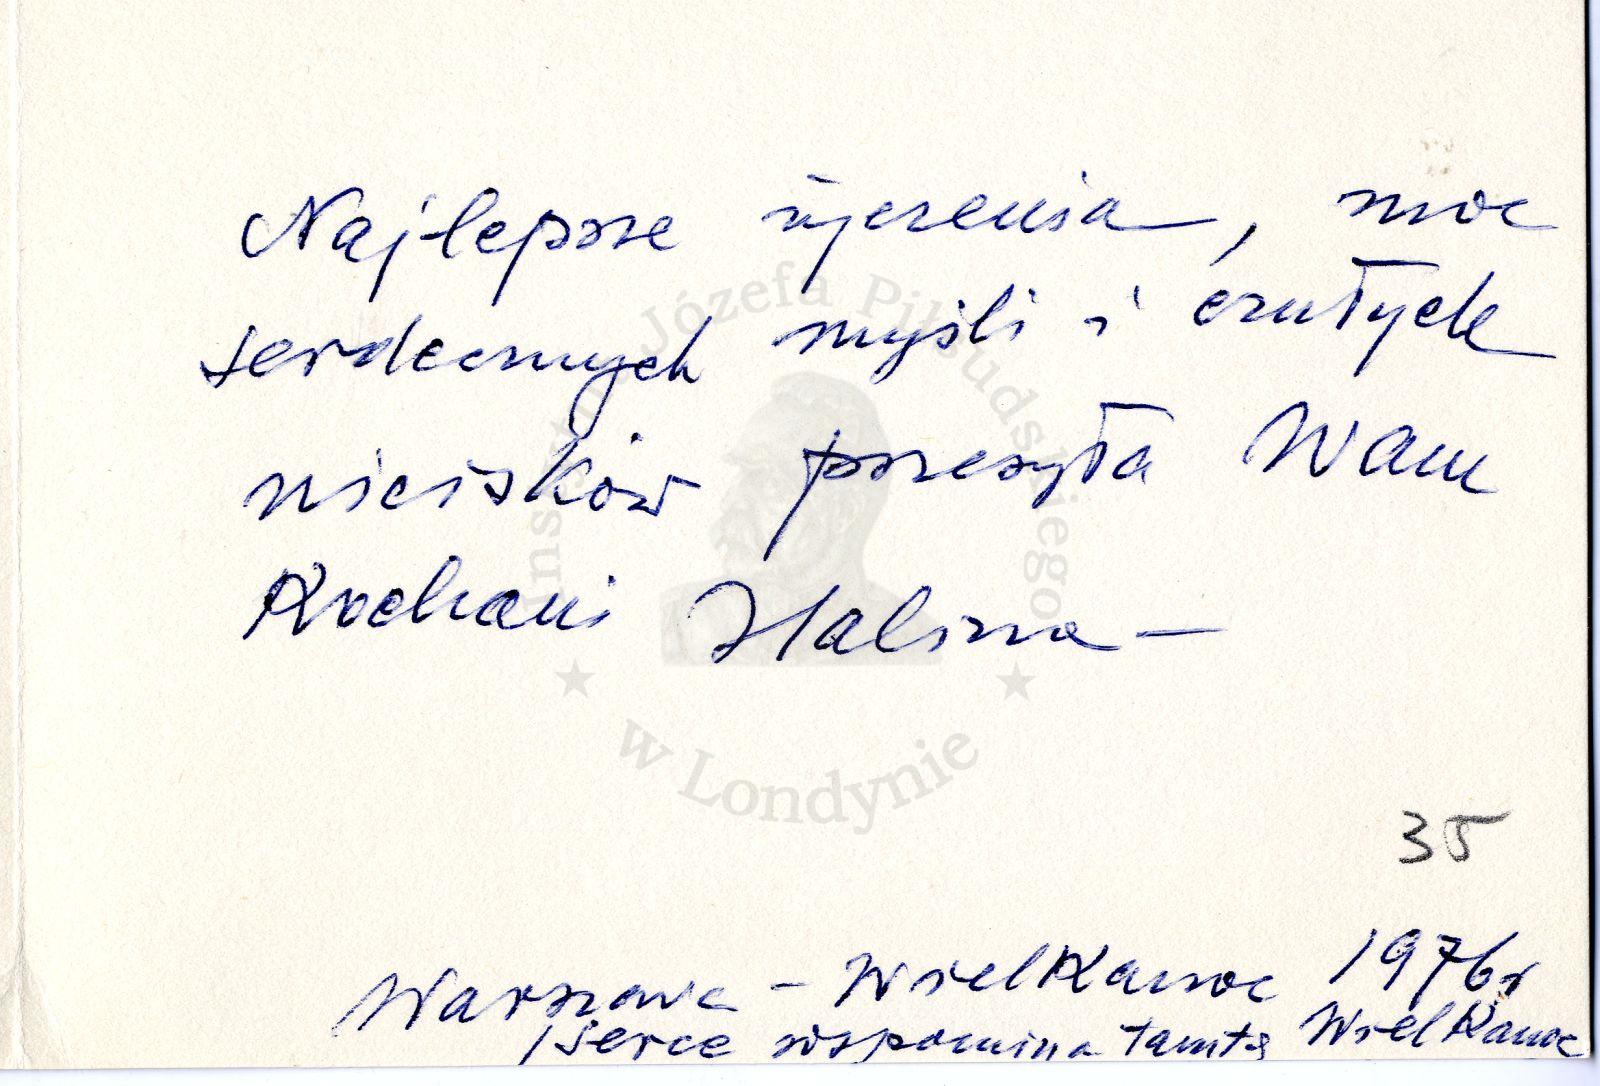 Najlepsze życzenia, moc
serdecznych myśli i czułych
uścisków przesyła Wam
Kochani Halina —
Instytut Józefa Piłsudskiego
w Londynie
35
Warszawa – Wielkanoc 1976r
/serce wspomina tamtą Wielkanoc